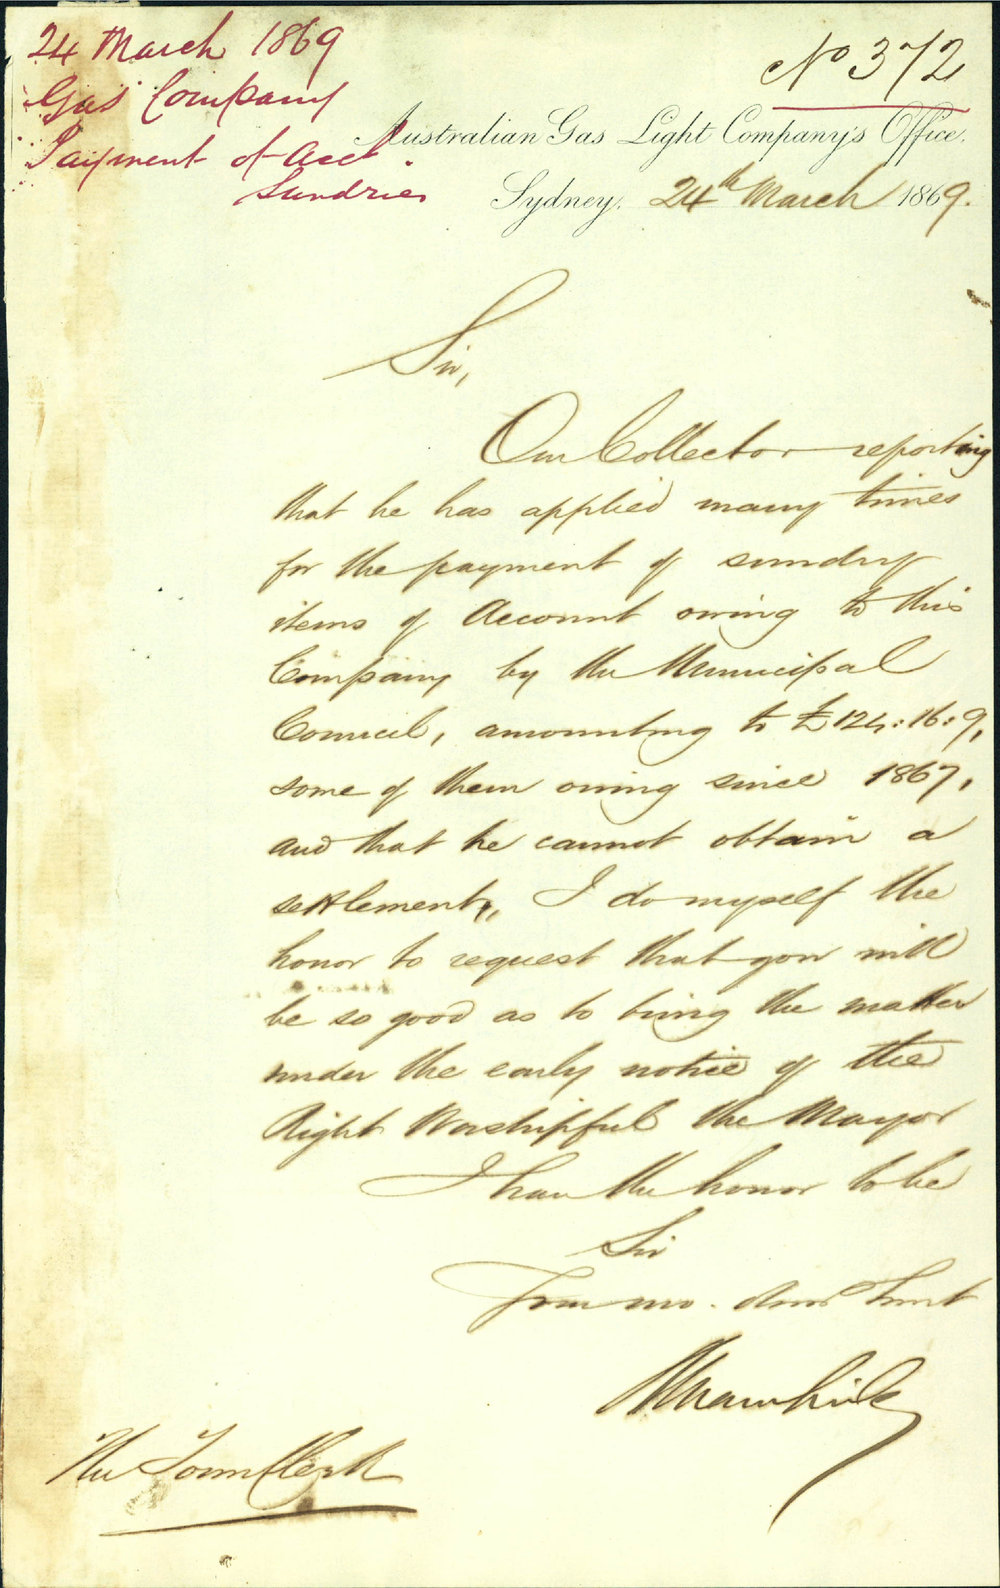 24 March 1869
Gas Company
Payment of Acct.
Sundries
No 372
Australian Gas Light Company's Office.
Sydney, 24th March 1869.
Sir,
Our Collector reporting
that he has applied many times
for the payment of sundry
items of Account owing to this
Company by the Municipal
Council, amounting to £124:16:9,
some of them owing since 1867,
and that he cannot obtain a
settlement, I do myself the
honor to request that you will
be so good as to bring the matter
under the early notice of the
Right Worshipful the Mayor
I have the honor to be
Sir
Your mo. Obed Servt
The Town Clerk